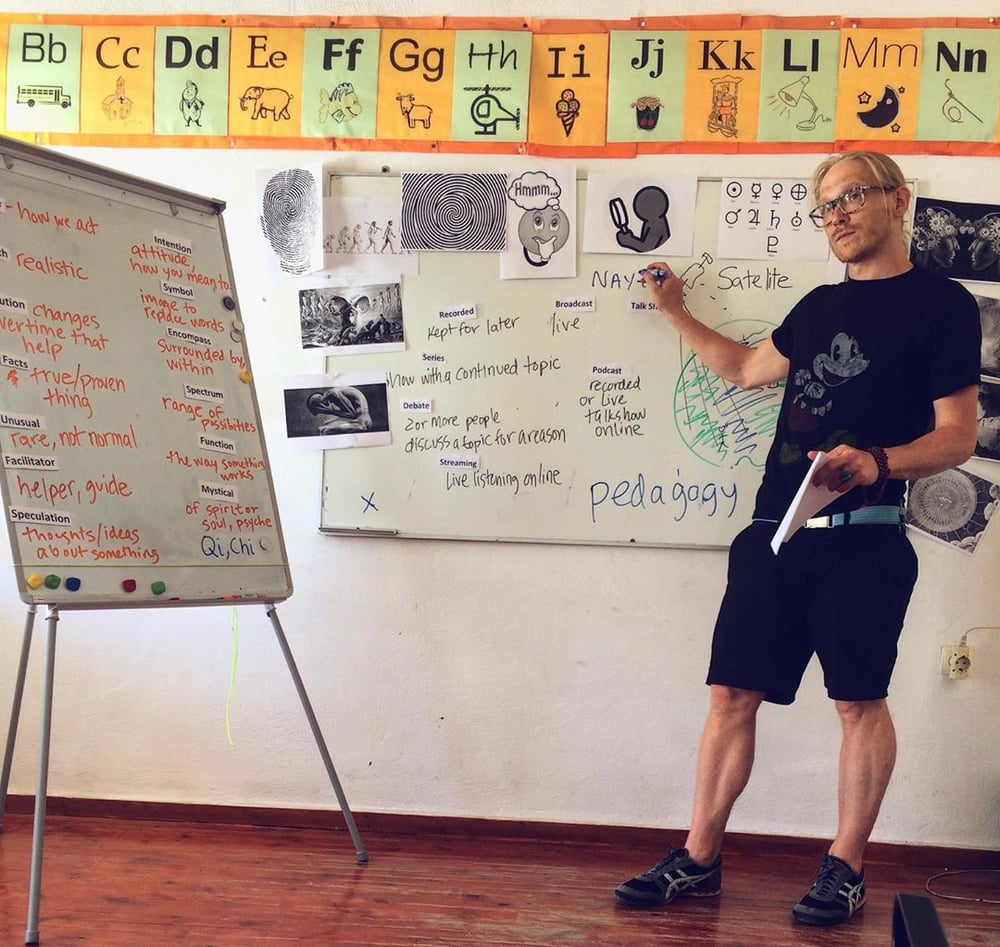 Bb Cc Dd Ee Ff Gg Hh Ii Jj Kk Ll Mm Nn
how we act
realistic
changes
overtime that
help
Facts
true/proven
thing
Unusual
rare, not normal
Facilitator
helper, guide
Speculation
thoughts/ideas
about something
Intention
attitude,
how you mean to
Symbol
image to
replace words
Encompass
Surrounded by,
within
Spectrum
range of
possibilities
Function
the way something
works
Mystical
of spirit or
soul, psyche
Qi, Chi
Hmmm...
NAY
Satelite
Recorded
kept for later
Broadcast
live
Talk
Series
show with a continued topic
Debate
2 or more people
discuss a topic for a reason
Streaming
Live listening online
Podcast
recorded
or live
talkshow
online
X
pedagogy